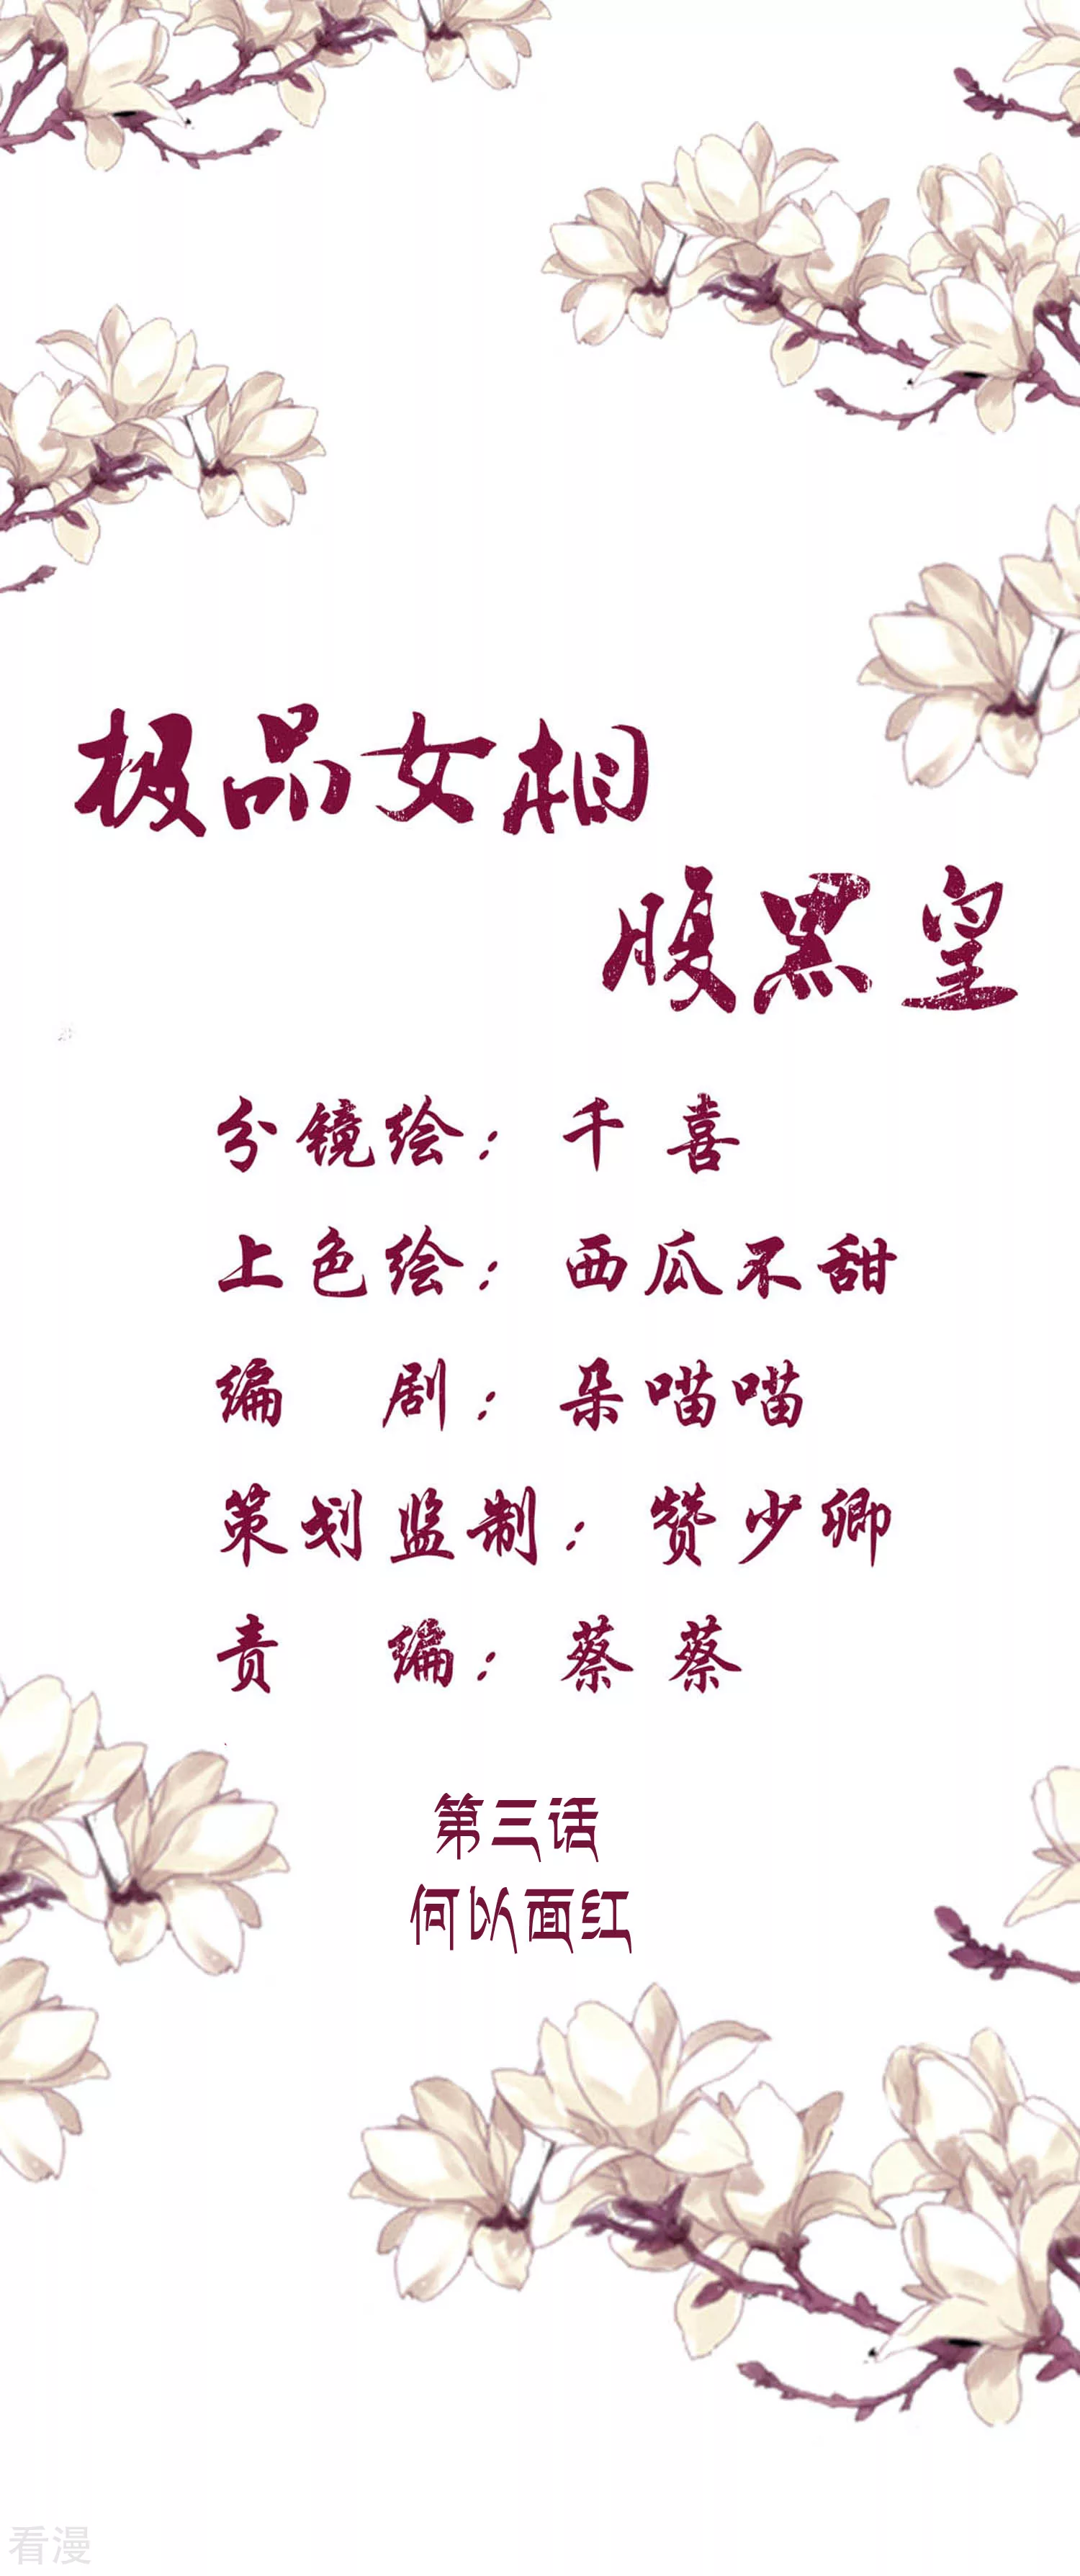 极品女相
腹黑皇
分镜绘：千喜
上色绘：西瓜不甜
编 剧：朵喵喵
策划监制：赞少卿
责 编：蔡蔡
第三话
何以面红
看漫